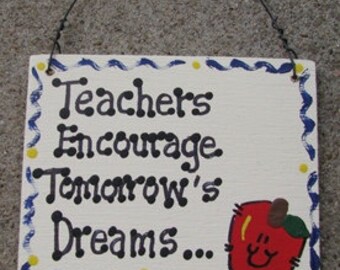 Teachers
Encourage
Tomorrow's
Dreams...